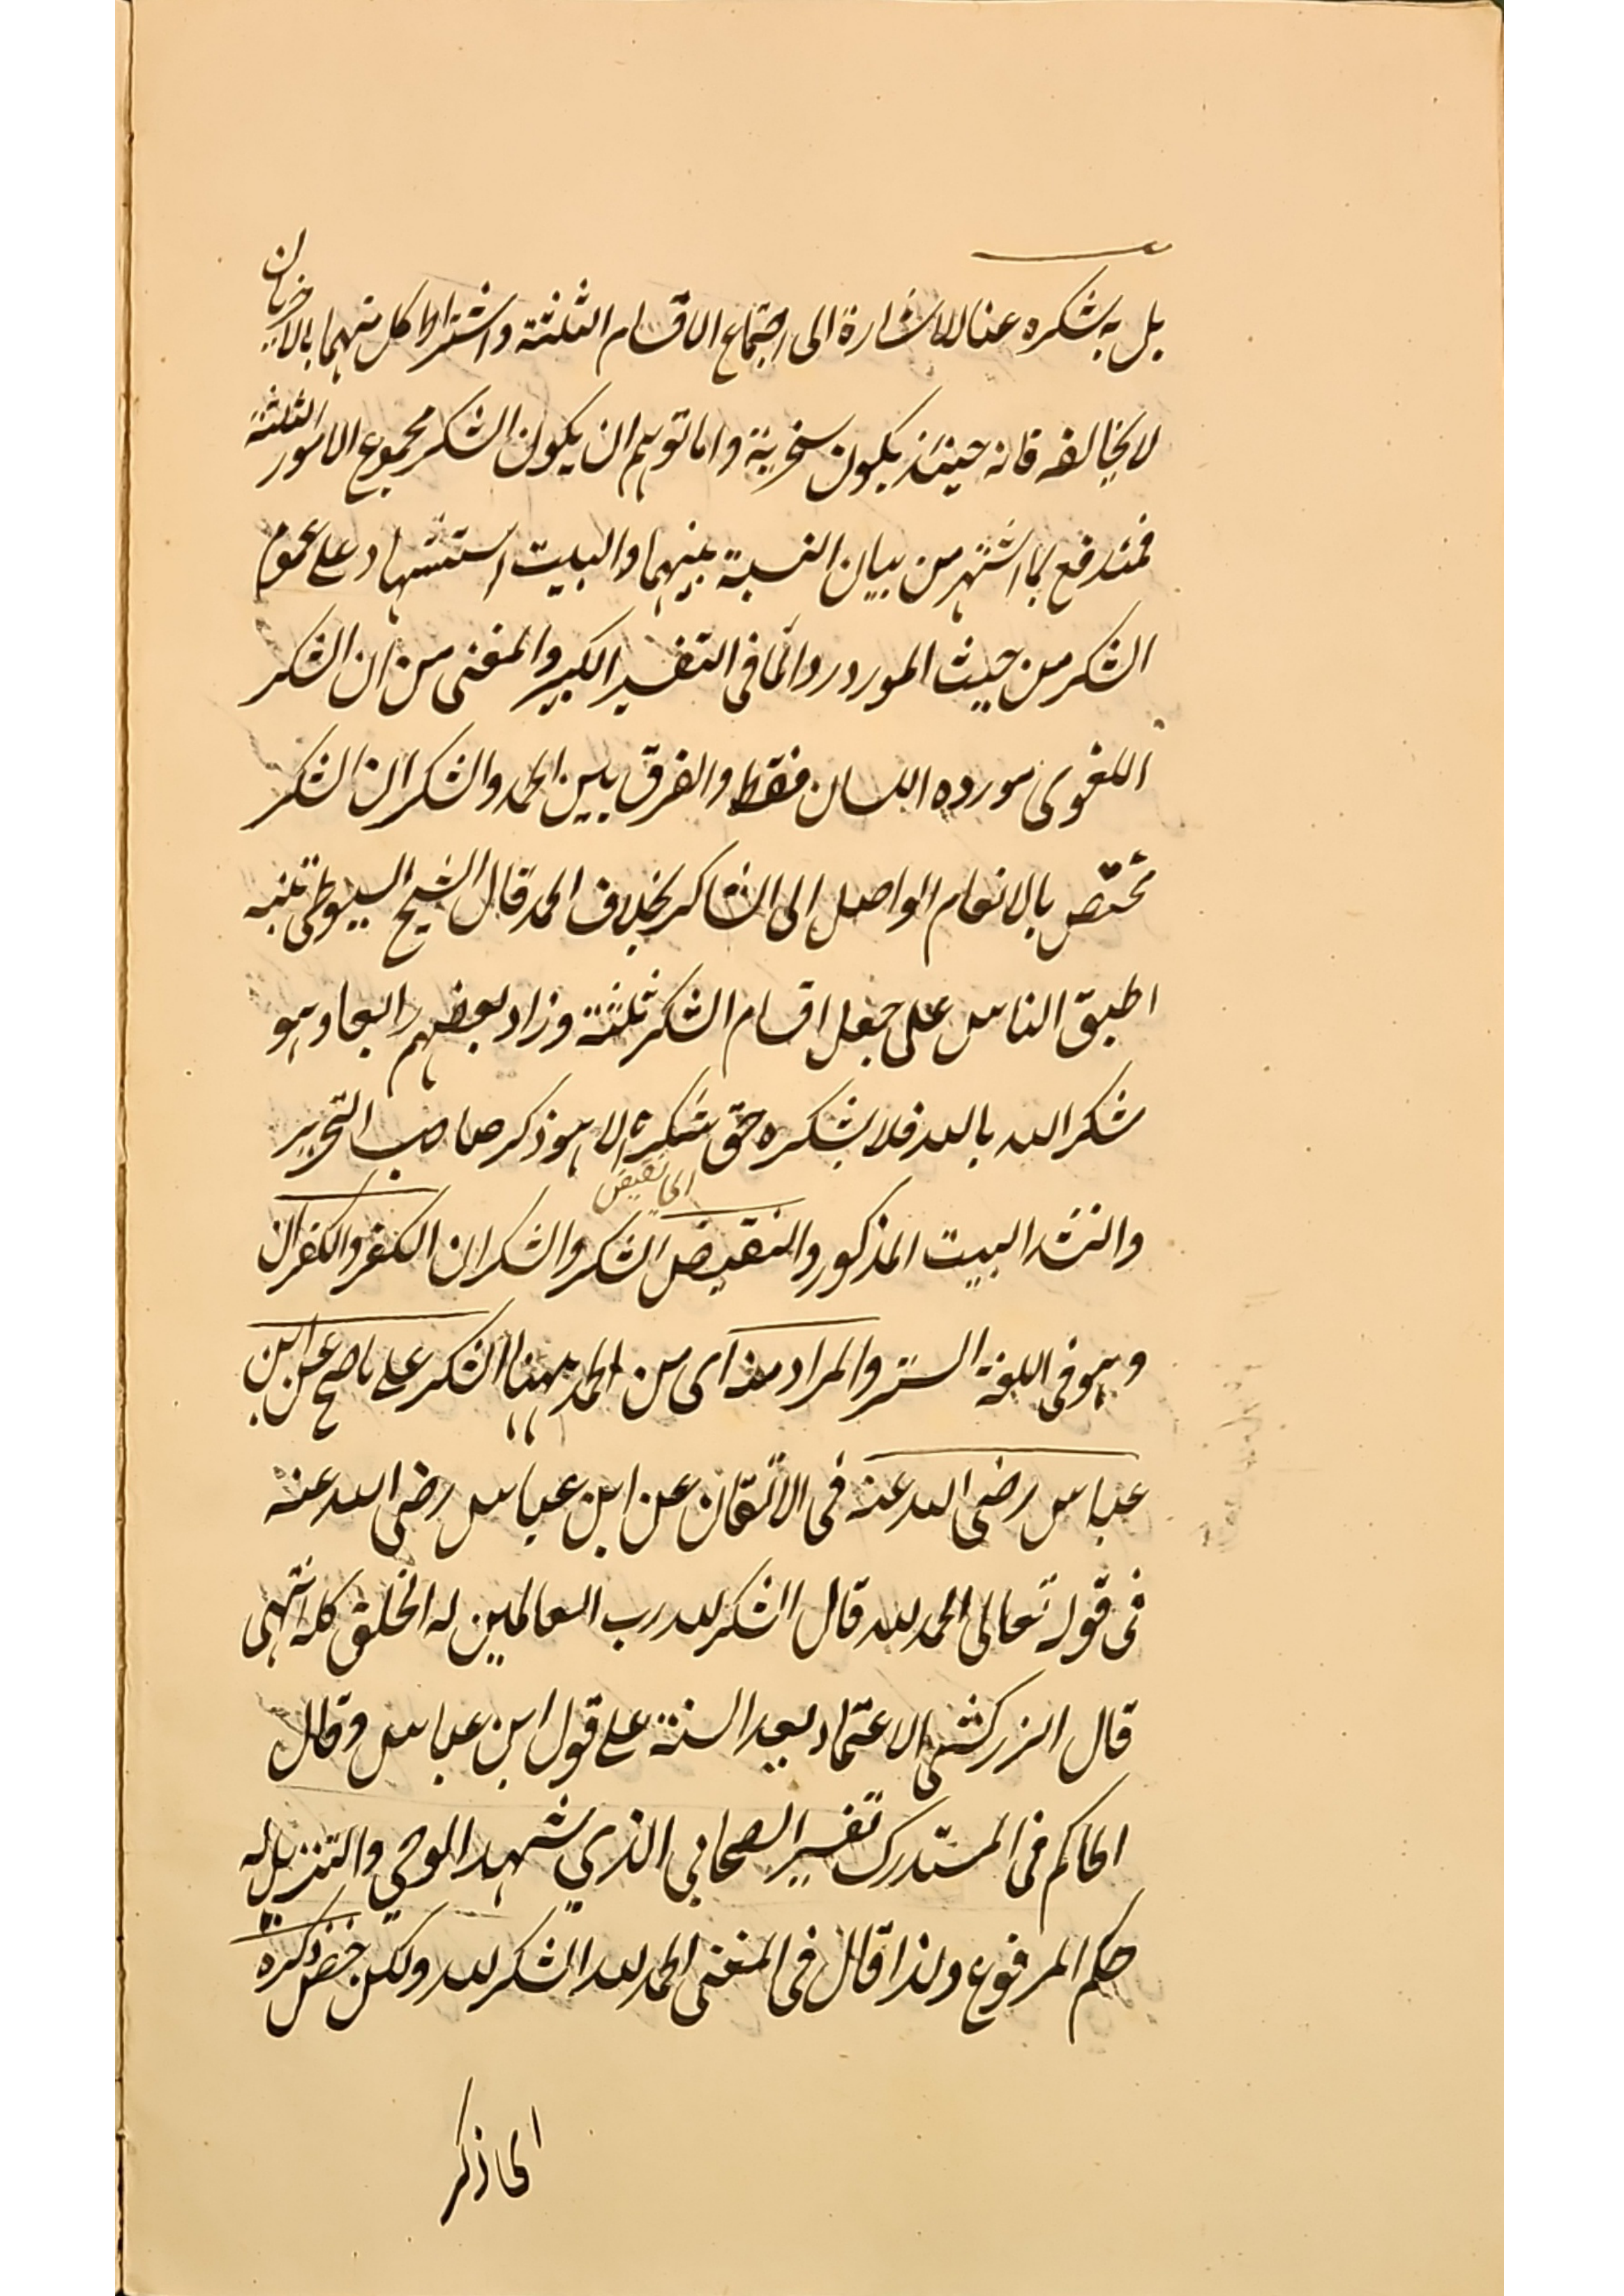 بل بشكره عنا للاشارة الى اجتماع الاقسام الثلثة واشتراط كل منهما بالاخريان
لا يخالفه فانه حينئذ يكون سخرية واما توهم ان يكون الشكر مجموع الامور الثلثة
فمندفع بما اشتهر من بيان النسبة بينهما والبيت استشهاد على عموم
الشكر من حيث المورد رد لما فى التفسير الكبير والمغنى من ان الشكر
اللغوى مورده اللسان فقط والفرق بين الحمد والشكر ان الشكر
مختص بالانعام الواصل الى الشاكر بخلاف الحمد قال الشيخ السيوطى تنبيه
اطبق الناس على جعل اقسام الشكر ثلثة وزاد بعضهم رابعا وهو
شكر الله بالله فلا يشكره حق شكره الا هو ذكر صاحب التحرير
وانشد البيت المذكور والنقيض اى نقيض الشكر والشكران الكفر والكفران
وهو فى اللغة الستر والمراد منه اى من الحمد ههنا الشكر على ما صح عن ابن
عباس رضى الله عنه فى الاتقان عن ابن عباس رضى الله عنه
فى قوله تعالى الحمد لله قال الشكر لله رب العالمين له الخلق كله انتهى
قال الزركشى الاعتماد بعد السنة على قول ابن عباس وقال
الحاكم فى المستدرك تفسير الصحابي الذي شهد الوحي والتنزيل له
حكم المرفوع ولذا قال فى المغنى الحمد لله الشكر لله ولكن خص ذكره
اى ذكر